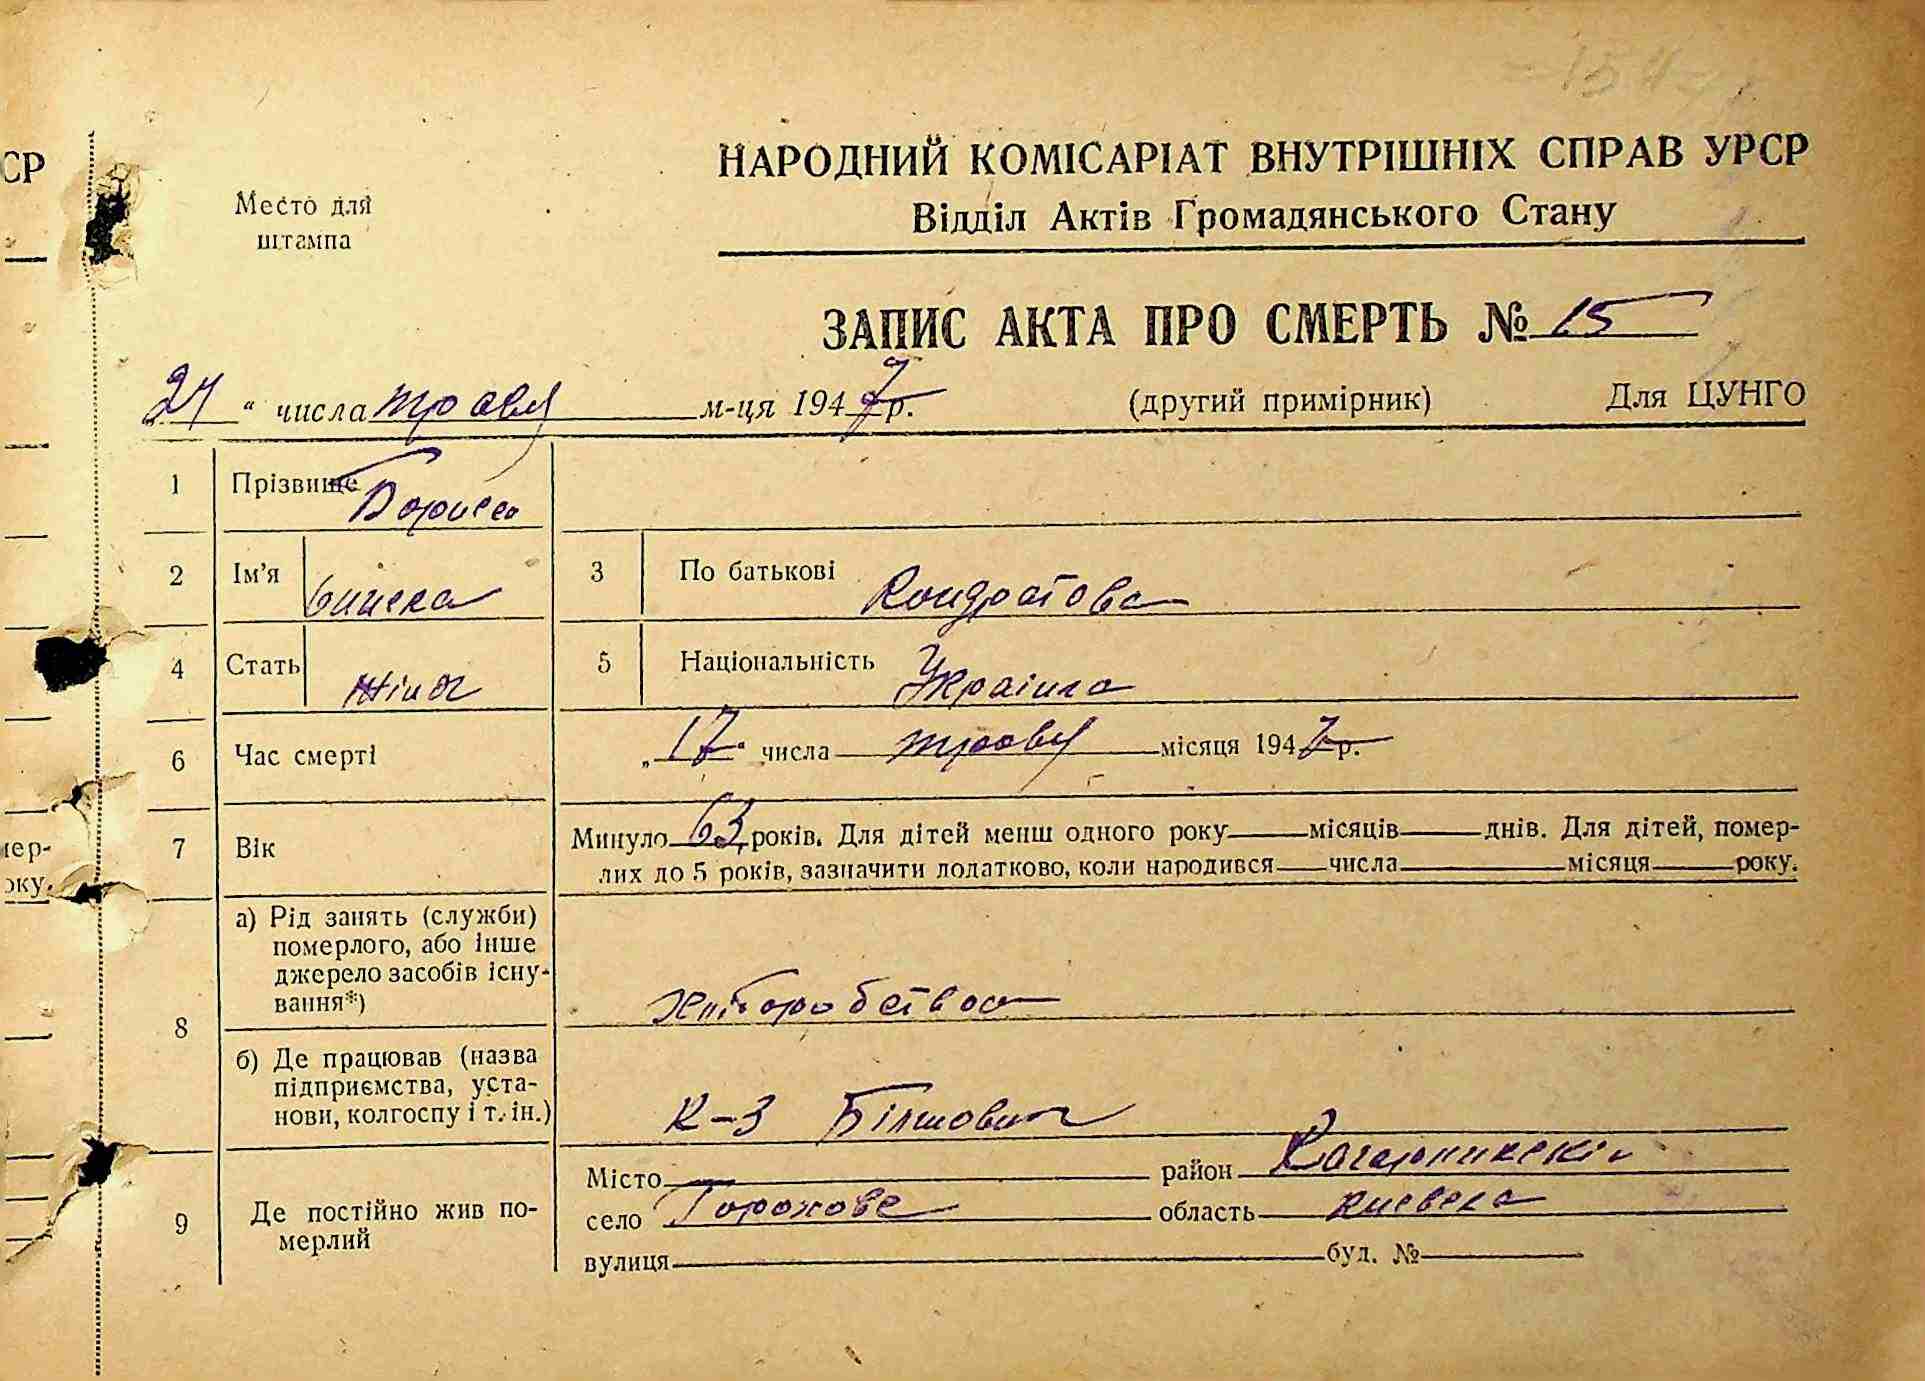 СР
Место для
штампа
НАРОДНИЙ КОМІСАРІАТ ВНУТРІШНІХ СПРАВ УРСР
Відділ Актів Громадянського Стану
ЗАПИС АКТА ПРО СМЕРТЬ № 15
„ 24 “ числа травня м-ця 1947 р. (другий примірник) Для ЦУНГО
1 Прізвище
2 Ім'я 3 По батькові Кондратова
4 Стать жіноч 5 Національність Українка
6 Час смерті „ 17 “ числа травня місяця 1947 р.
7 Вік Минуло 63 років. Для дітей менш одного року місяців днів. Для дітей, помер-
лих до 5 років, зазначити додатково, коли народився числа місяця року.
8 а) Рід занять (служби)
померлого, або інше
джерело засобів існу-
вання*) хліборобство
б) Де працював (назва
підприємства, уста-
нови, колгоспу і т. ін.) К-З Більшовик
9 Де постійно жив по-
мерлий
Місто район
село Горохове область Киевска
вулиця буд. №